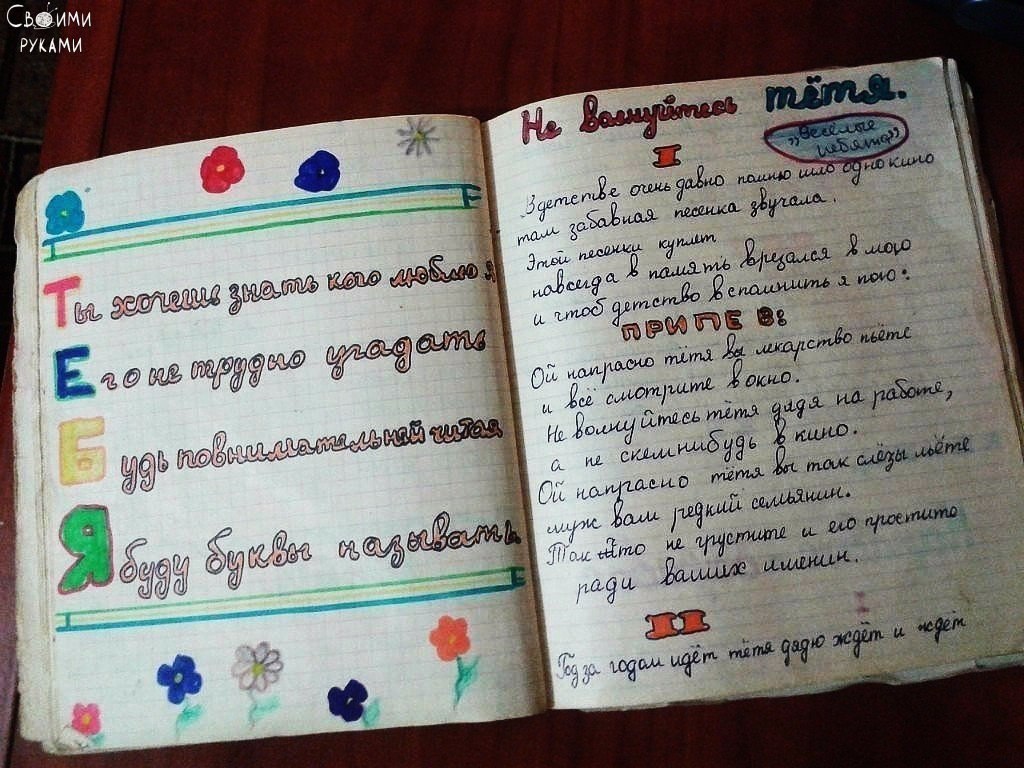 Своими
руками
Ты хочешь знать кого люблю я
Его не трудно угадать
Будь повнимательней читая
Я буду буквы называть
Не волнуйтесь тётя.
"Весёлые
ребята"
I
В детстве очень давно помню шло одно кино
там забавная песенка звучала.
Этой песенки куплет
навсегда в память врезался в мою
и чтоб детство вспомнить я пою:
ПРИПЕВ:
Ой напрасно тётя вы лекарство пьёте
и всё смотрите в окно.
Не волнуйтесь тётя дядя на работе,
а не с кемнибудь в кино.
Ой напрасно тётя вы так слёзы льёте
муж вам редкий семьянин.
Так что не грустите и его простите
ради ваших именин.
II
Год за годом идёт тётя дядю ждёт и ждёт